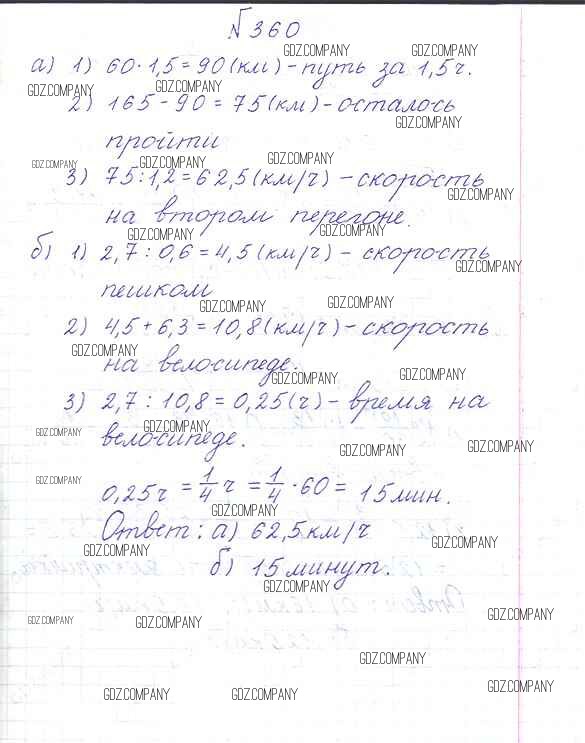 №360
GDZ.COMPANY GDZ.COMPANY
а) 1) 60·1,5=90(км)-путь за 1,5ч.
GDZ.COMPANY GDZ.COMPANY
2) 165-90=75(км)-осталось
GDZ.COMPANY
пройти
GDZ.COMPANY GDZ.COMPANY GDZ.COMPANY
3) 75:1,2=62,5(км/ч)-скорость
GDZ.COMPANY
на втором перегоне.
GDZ.COMPANY GDZ.COMPANY
б) 1) 2,7:0,6=4,5(км/ч)-скорость
GDZ.COMPANY
пешком
GDZ.COMPANY GDZ.COMPANY
2) 4,5+6,3=10,8(км/ч)-скорость
GDZ.COMPANY
на велосипеде.
GDZ.COMPANY GDZ.COMPANY
3) 2,7:10,8=0,25(ч)-время на
GDZ.COMPANY GDZ.COMPANY
велосипеде.
GDZ.COMPANY GDZ.COMPANY
GDZ.COMPANY
0,25ч = 1/4 ч = 1/4 · 60 = 15 мин.
GDZ.COMPANY
Ответ: а) 62,5км/ч
GDZ.COMPANY GDZ.COMPANY
б) 15 минут.
GDZ.COMPANY
GDZ.COMPANY GDZ.COMPANY GDZ.COMPANY
GDZ.COMPANY
GDZ.COMPANY GDZ.COMPANY GDZ.COMPANY